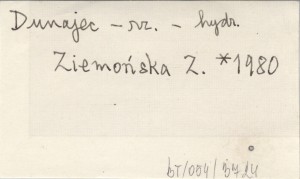 Dunajec – rz. – hydr.
Ziemońska Z. *1980
bT/004/